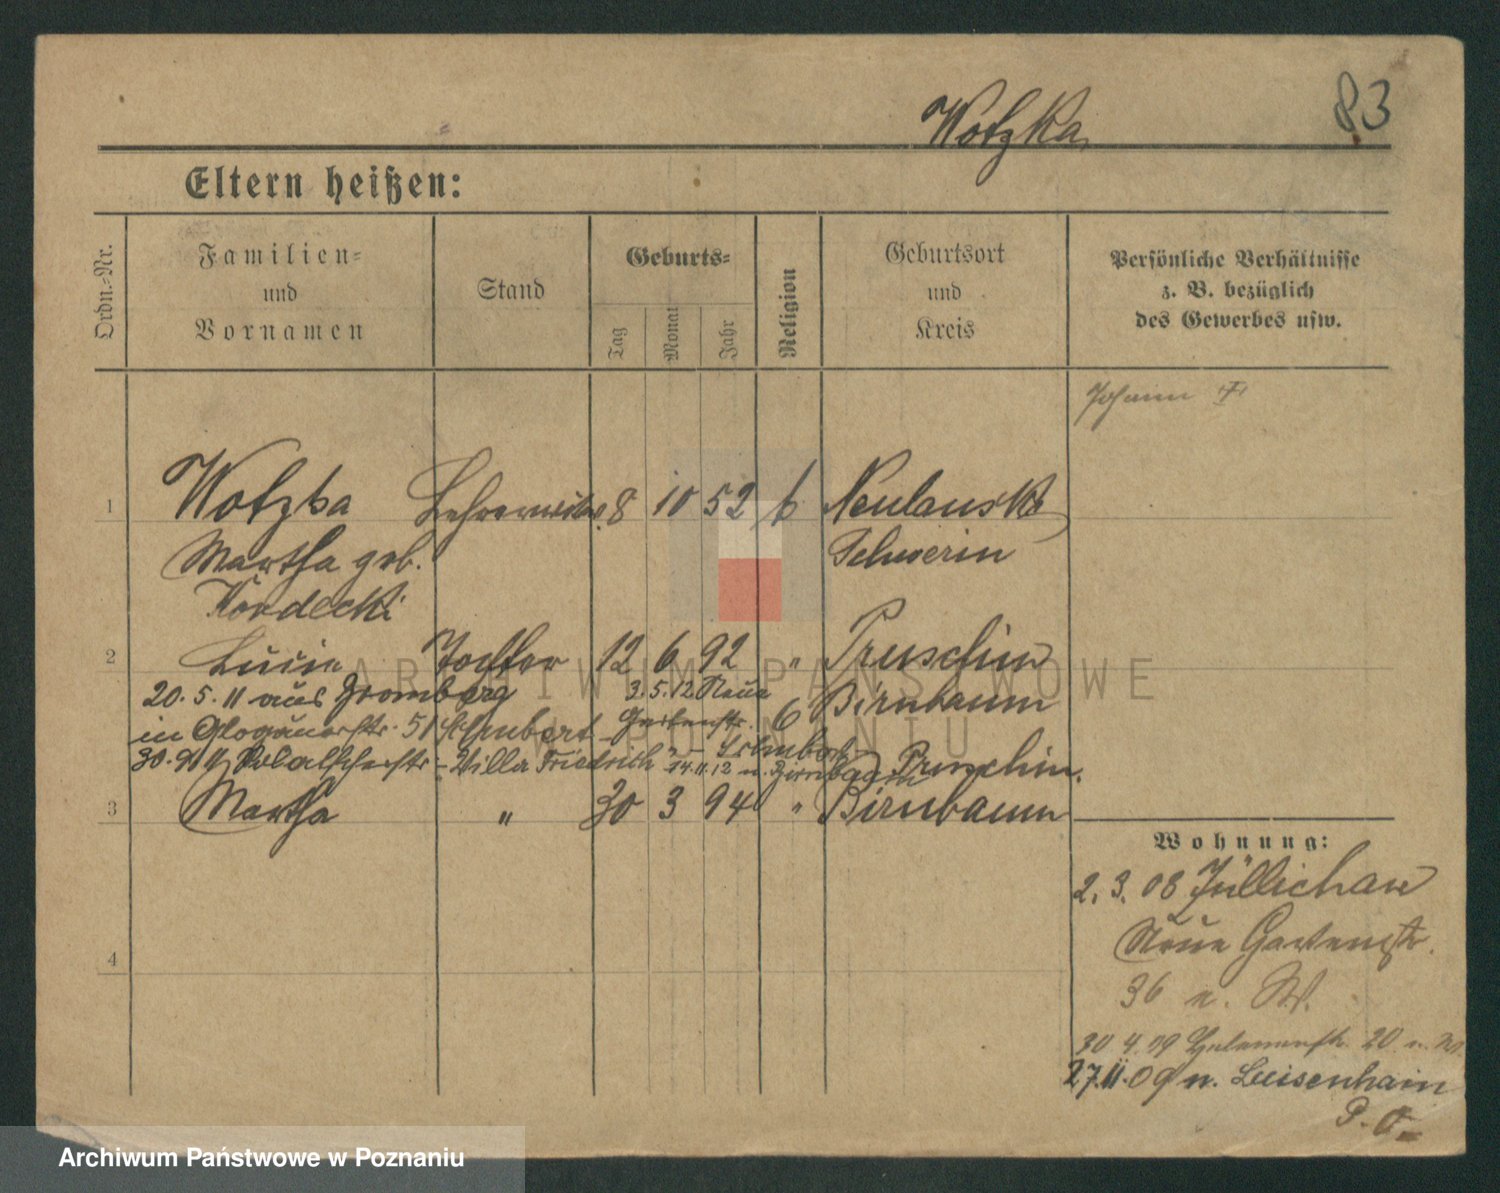 Wotzka
83
Eltern heißen:
Ordn.-Nr.
Familien- und Vornamen
Stand
Geburts-
Tag
Monat
Jahr
Religion
Geburtsort und Kreis
Persönliche Verhältnisse
z. B. bezüglich
des Gewerbes usw.
Johann
1 Wotzka 8 10 52 Neulauske
Martha geb. Schwerin
Kordecki
2 Lucie Tochter 12 6 92 " Pruschim
20. 5. 11 aus Bromberg 3. 5. 12 Neue Birnbaum
in Glogauerstr. 51 Gartenstr. 6
Villa Friedrich 14. 11. 12 n. Pruschim.
3 Martha " 30 3 94 " Birnbaum
4
Wohnung:
2. 3. 08 Züllichau
Neue Gartenstr.
36 n. W.
30 4. 09 20
27. 11. 09 n. Luisenhain
P. O.
ARCHIWUM PAŃSTWOWE
W POZNANIU
Archiwum Państwowe w Poznaniu